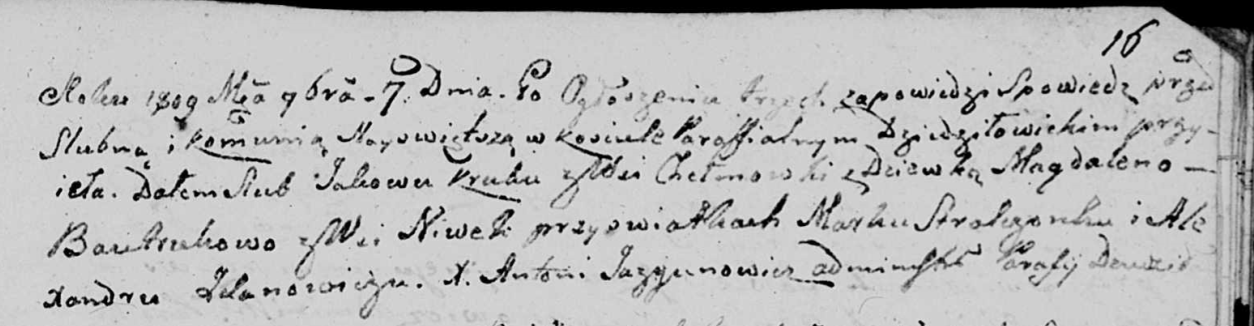 16
Roku 1809 Mca 7brā - 7 Dnia. Po Ogłoszeniu trzech zapowiedzi Spowiedz przed
Slubną i komunią Nayswiętszą w kosciele Paraffialnym Dziedziłowickim przy-
ieta. Dałem slub Jakowu Kruku z Wsi Chełmowki z Dziewką Magdaleno -
Bautrukowo z Wsi Niwek przy swiadkach Marku Strelczonku i Ale
xandru Jelanowiczu. X. Antoni Jazgunowicz administr Parafij Dzedził